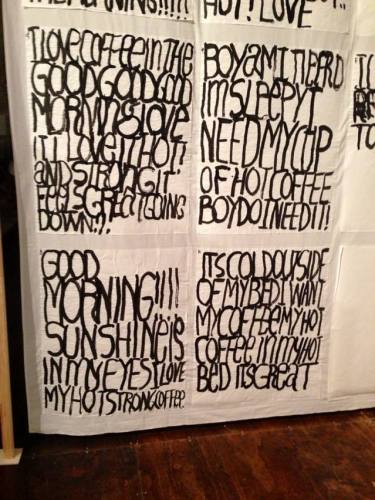 HOT! LOVE
I LOVE COFFEE IN THE
GOOD GOOD GOOD
MORNING LOVE
IT I LOVE IT HOT!
AND STRONG IT
FEELS GREAT GOING
DOWN!!
BOY AM I TIBERD
I'M SLEEPY I
NEED MY CUP
OF HOT COFFEE
BOY DO I NEED IT!
TO
GOOD
MORNING!!!!
SUNSHINE IS
IN MY EYES I LOVE
MY HOT STRONG COFFEE.
ITS COLD OUTSIDE
OF MY BED I WANT
MY COFFEE MY HOT
COFFEE IN MY HOT
BED ITS GREAT